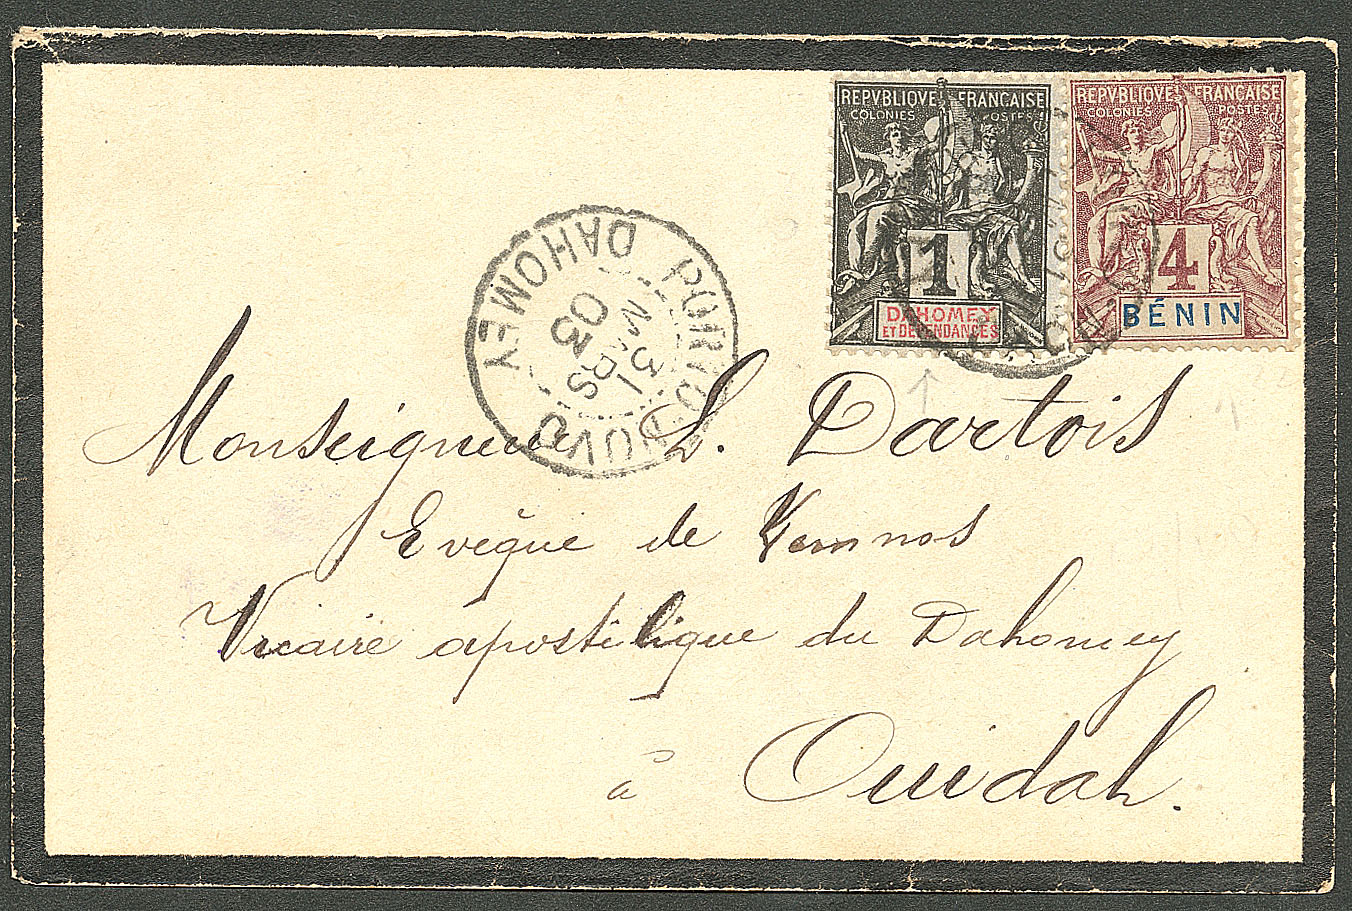 REPVBLIQVE FRANÇAISE
COLONIES POSTES
1
DAHOMEY
ET DÉPENDANCES
REPVBLIQVE FRANÇAISE
COLONIES POSTES
4
BÉNIN
PORTO-NOVO
31
MARS
03
DAHOMEY
Monseigneur L. Dartois
Evèque de
Vicaire apostilique du Dahomey
à Ouidah.